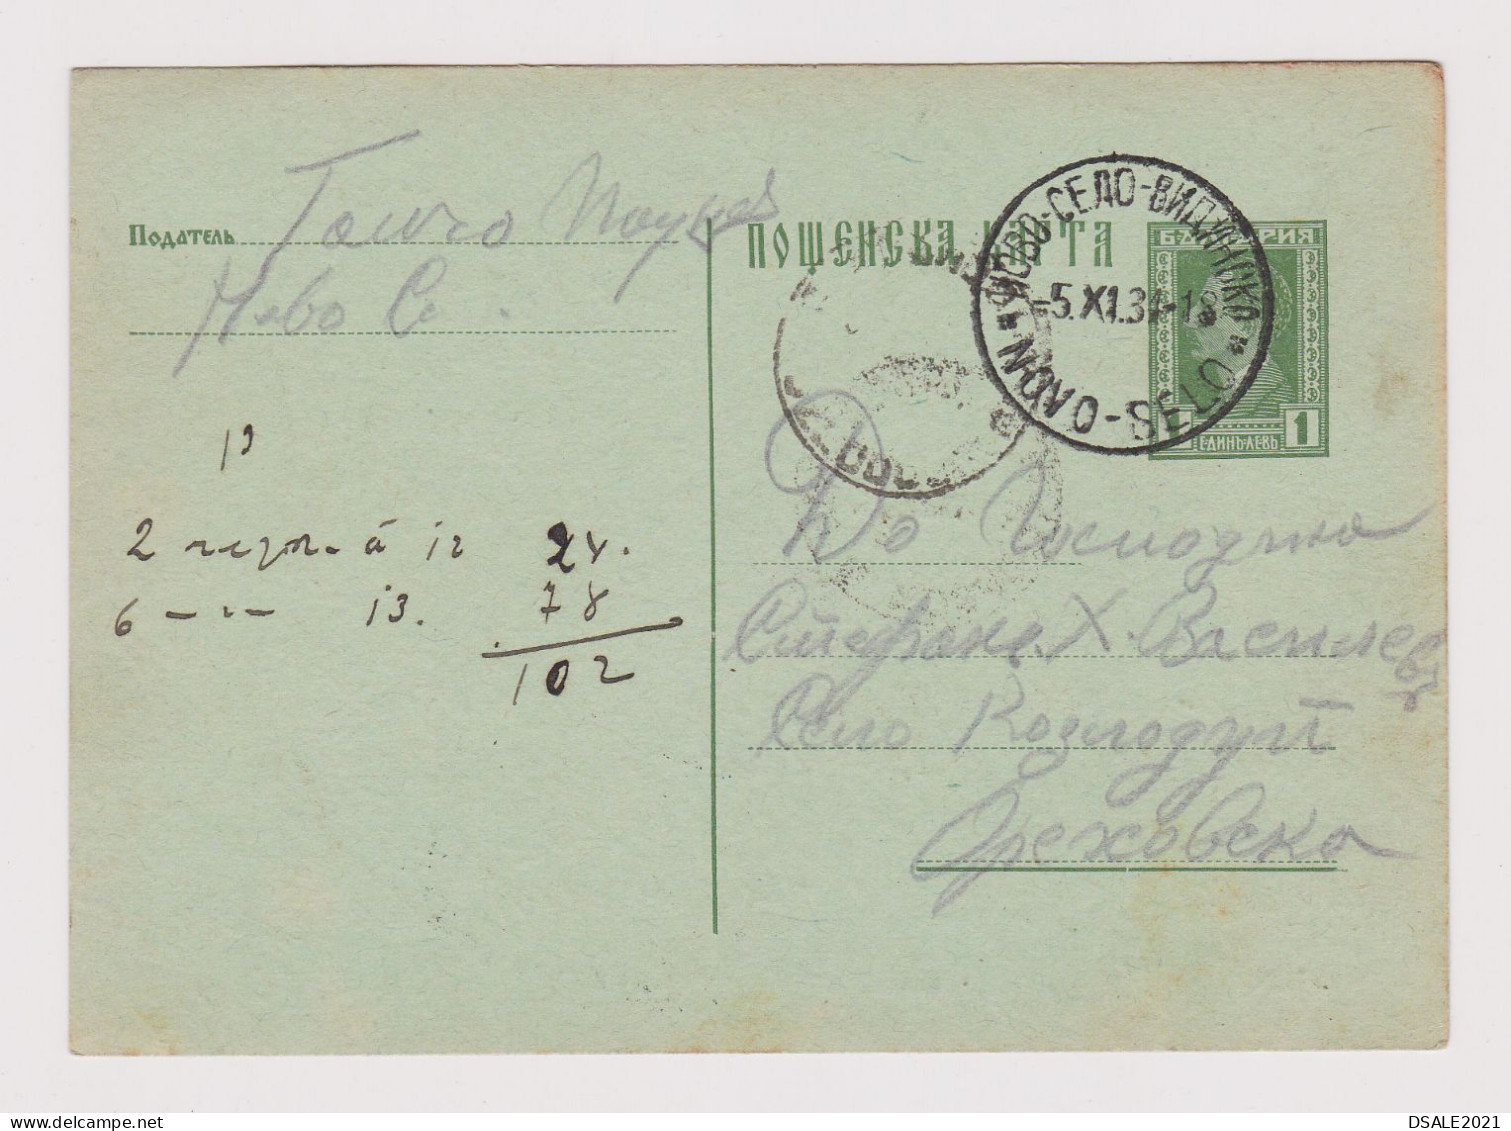 ПОЩЕНСКА КАРТА
БЪЛГАРИЯ
1 1
ЕДИНЪ ЛЕВЪ
НОВО-СЕЛО-ВИДИНСКО
-5.XI.34-18
NOVO-SELO
Податель Тошо
Ново С.
До Господина
Стефанъ Х. Василевъ
Село Козлодуй
Орѣховско
13
2 à 12 24.
6 — " — 13. 78
102
DSALE2021